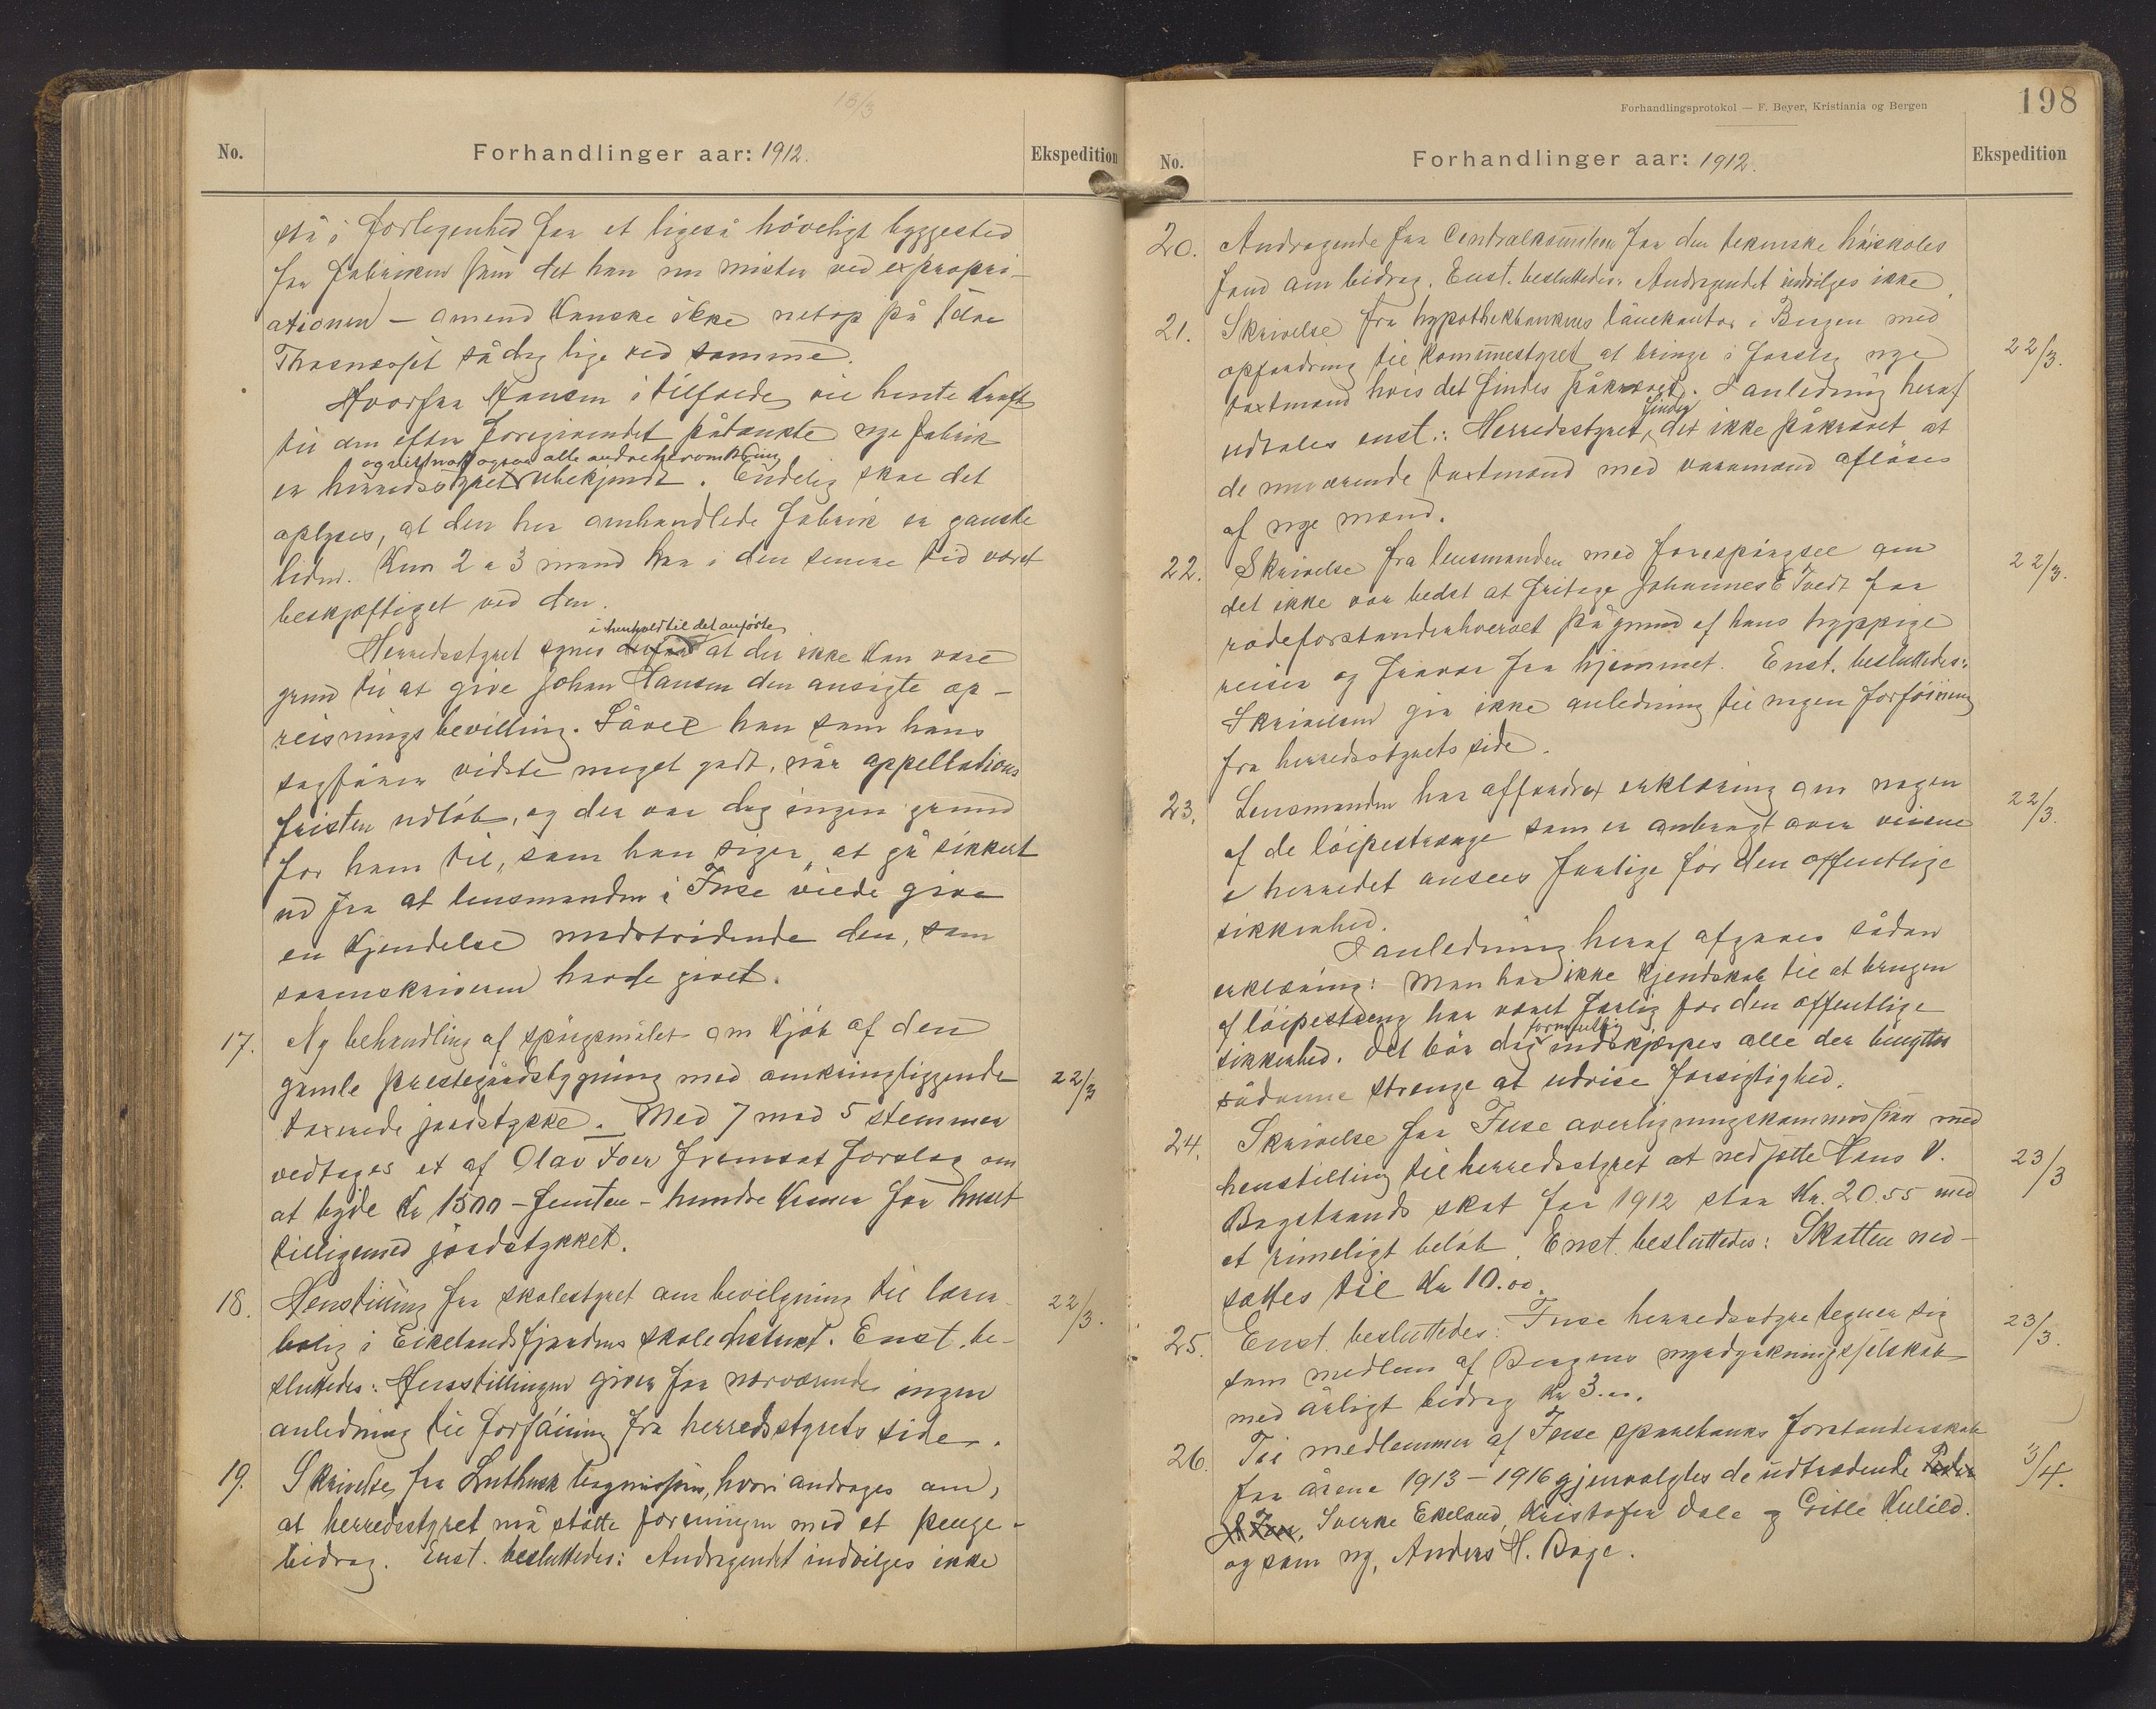 18/3
No. Forhandlinger aar: 1912. Ekspedition
stå i forlegenhed for et ligeså høveligt byggested
for fabriken som det han nu mister ved expropri-
ationen – omend kanske ikke netop på
så dog lige ved samme.
Hvorfra Hansen i tilfælde vil hente kraft
til den efter foregivendet påtænkte nye fabrik
og vistnok ogsaa alle andre heromkring
er herredsstyret ubekjendt. Endelig skal det
oplyses, at den her omhandlede fabrik er ganske
liden. Kun 2 a 3 mand har i den senere tid været
beskjæftiget ved den.
i henhold til det anførte
Herredsstyret synes derfor at der ikke kan være
grund til at give Johan Hansen den ansøgte op-
reisningsbevilling. Såvel han som hans
sagfører vidste meget godt, når appellations
fristen udløb, og der var dog ingen grund
for ham til, som han siger, at gå sikkert
ud fra at lensmanden i Fuse vilde give
en kjendelse modstridende den, som
sorenskriveren havde givet.
17. Ny behandling af spørgsmålet om kjøb af den
gamle prestegårdsbygning med omkringliggende 22/3
taxerede jordstykke. Med 7 mod 5 stemmer
vedtages et af Olav fremsat forslag om
at byde kr 1500 – femten – hundre kroner for huset
tilligemed jordstykket.
18. Henstilling fra skolestyret om bevilgning til lærer- 22/3.
bolig i Eikelandsfjordens skoledistrikt. Enst. be-
sluttedes: Henstillingen giver for nærværende ingen
anledning til forføining fra herredsstyrets side.
19. Skrivelse fra Luthersk hvori andrages om,
at herredsstyret må støtte foreningen med et penge-
bidrag. Enst. besluttedes: Andragendet indvilges ikke
Forhandlingsprotokol — F. Beyer, Kristiania og Bergen
198
No. Forhandlinger aar: 1912. Ekspedition
20. Andragende fra Centralkomiteen for den tekniske høiskoles
fond om bidrag. Enst. besluttedes: Andragendet indvilges ikke.
21. Skrivelse fra hypothekbankens lånekontor i Bergen med
opfordring til komunestyret at bringe i forslag nye 22/3.
taxtmænd hvis det findes påkrævet. I anledning heraf
finder
udtales enst.: Herredsstyret det ikke påkrævet at
de nuværende taxtmænd med varamænd afløses
af nye mænd.
22. Skrivelse fra lensmanden med forespørgsel om 22/3.
det ikke var bedst at fritage Johannes E Tvedt for
rodeforstanderhvervet på grund af hans hyppige
reiser og fravær fra hjemmet. Enst. besluttedes:
Skrivelsen gir ikke anledning til nogen forføining
fra herredsstyrets side.
23. Lensmanden har affordret erklæring om nogen 22/3.
af de løipestrenge som er anbragt over veiene
i herredet ansees farlige for den offentlige
sikkerhed.
I anledning heraf afgaves sådan
erklæring: Man har ikke kjendskab til at brugen
af løipestreng har været farlig for den offentlige
formentlig
sikkerhed. Det bør dog indskjærpes alle der benytter
sådanne strenge at udvise forsigtighed.
24. Skrivelse fra Fuse overligningskommission med
henstilling til herredsstyret at nedsætte Hans V. 23/3
Bogstrands skat for 1912 stor Kr. 20.55 med
et rimeligt beløb. Enst. besluttedes: Skatten ned-
sættes til Kr 10.00.
25. Enst. besluttedes: Fuse herredsstyre tegner sig 23/3.
som medlem af Bergens myrdyrkningsselskab
med årligt bidrag Kr 3.00.
26. Til medlemmer af Fuse sparebanks forstanderskab
for årene 1913–1916 gjenvalgtes de udtrædende Peder 3/4.
Sverke Ekeland, Kristofer Dale og Gitle Kulild.
og som ny, Anders H. Boge.